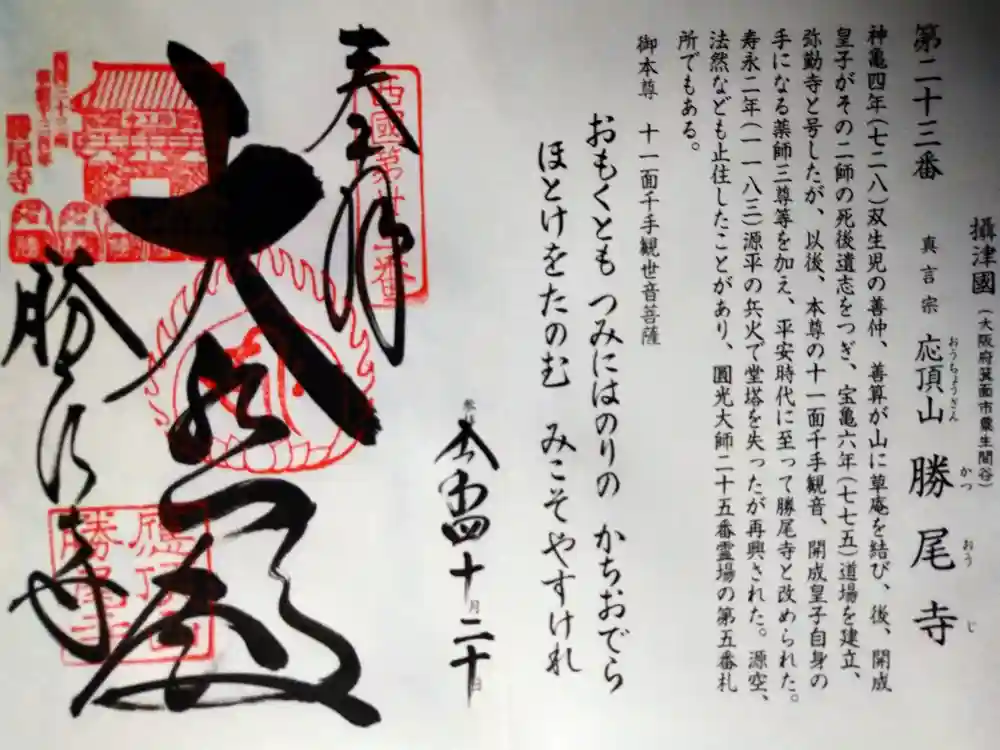 攝津國(大阪府箕面市粟生間谷)
第二十三番 真言宗 応頂山 勝尾寺
おうちょうざん かつ おう じ
神亀四年(七二八)双生児の善仲、善算が山に草庵を結び、後、開成
皇子がその二師の死後遺志をつぎ、宝亀六年(七七五)道場を建立、
弥勤寺と号したが、以後、本尊の十一面千手観音、開成皇子自身の
手になる薬師三尊等を加え、平安時代に至って勝尾寺と改められた。
寿永二年(一一八三)源平の兵火で堂塔を失ったが再興された。源空、
法然なども止住したことがあり、圓光大師二十五番霊場の第五番札
所でもある。
御本尊 十一面千手観世音菩薩
おもくとも つみにはのりの かちおでら
ほとけをたのむ みこそやすけれ
十月二十日
奉拝
西國第廿三番
大悲殿
勝尾寺
勝尾寺